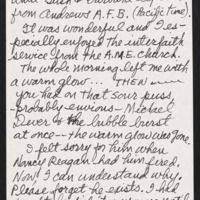 from Andrews A.F.B. (Pacific Time).
It was wonderful and I es-
pecially enjoyed the interfaith
service from the A.M.E. Church.
The whole morning left me with
a warm glow... THEN
you had on that sour puss,
-probably envious- Michael
Deaver & the bubble burst
at once--the warm glow was gone.
I felt sorry for him when
Nancy Reagan had him fired.
Now I can understand why.
Please forget he exists. I held